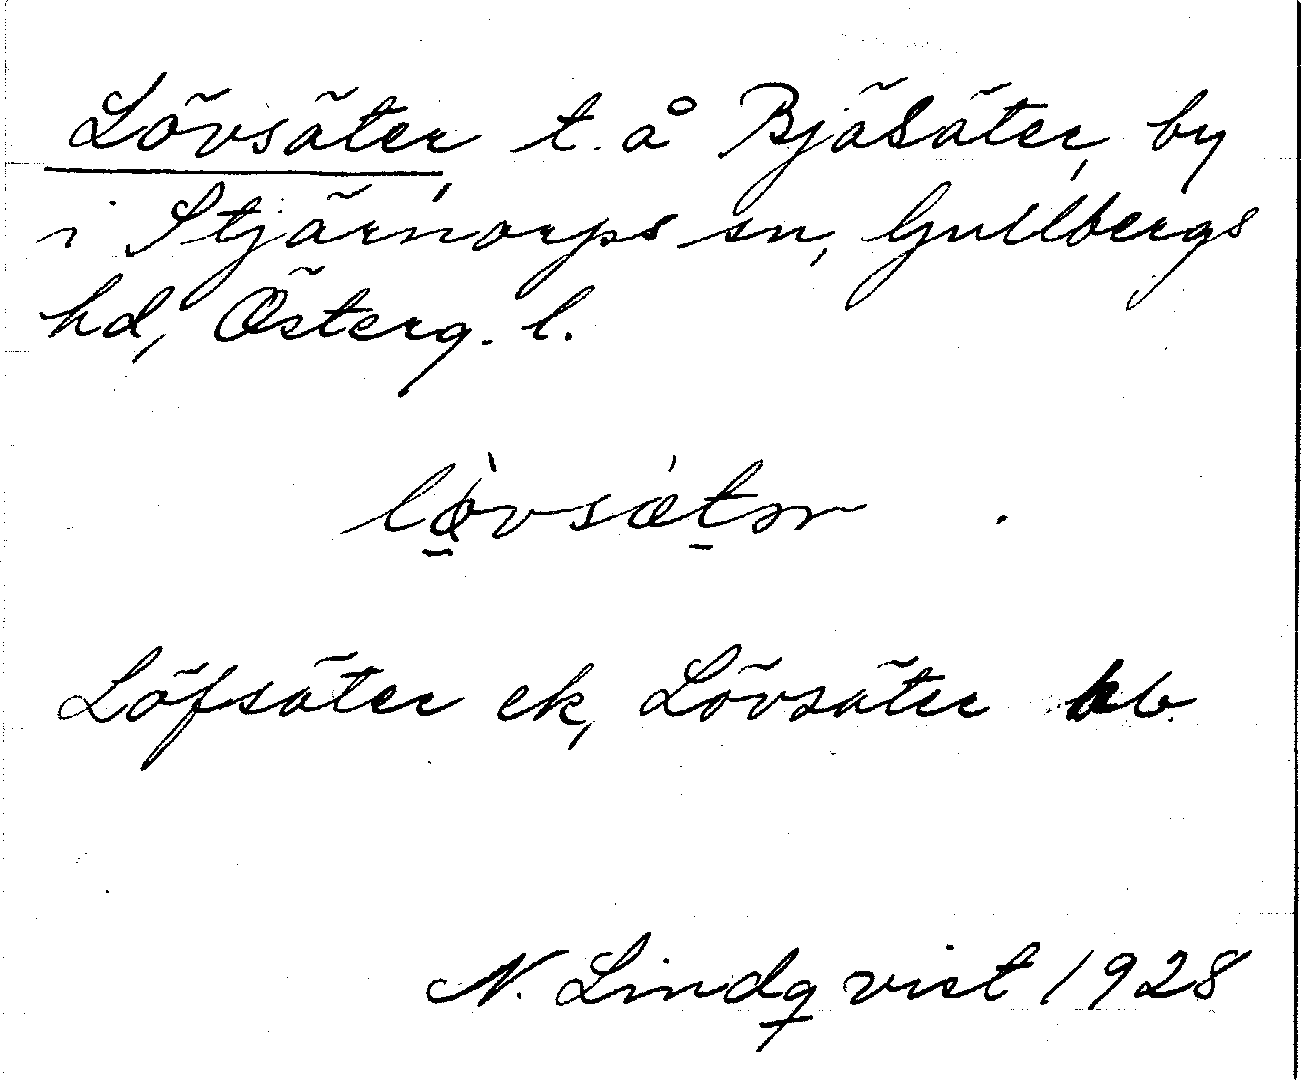 Lövsäter, t. å Bjäsäter, by
i Stjärnorps sn, Gullbergs
hd, Österg. l.
lø̀vsǽtər
Löfsäter ek, Lövsäter kb
N. Lindqvist 1928